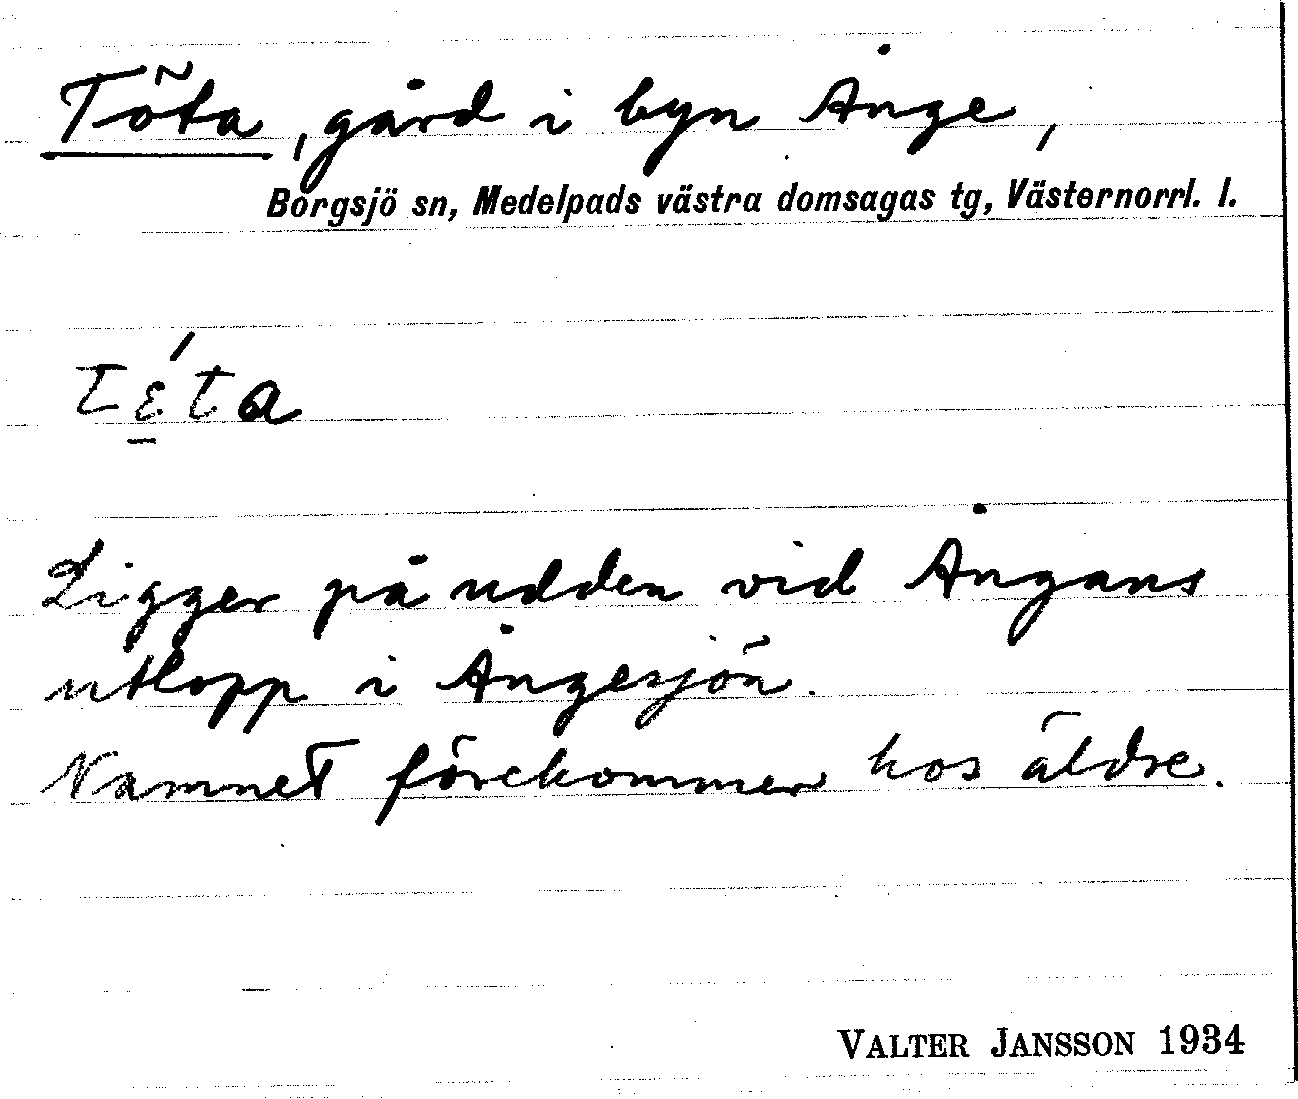 Töta, gård i byn Ånge,
Borgsjö sn, Medelpads västra domsagas tg, Västernorrl. l.
Ligger på udden vid Ångans
utlopp i Ångesjön.
Namnet förekommer hos äldre.
VALTER JANSSON 1934